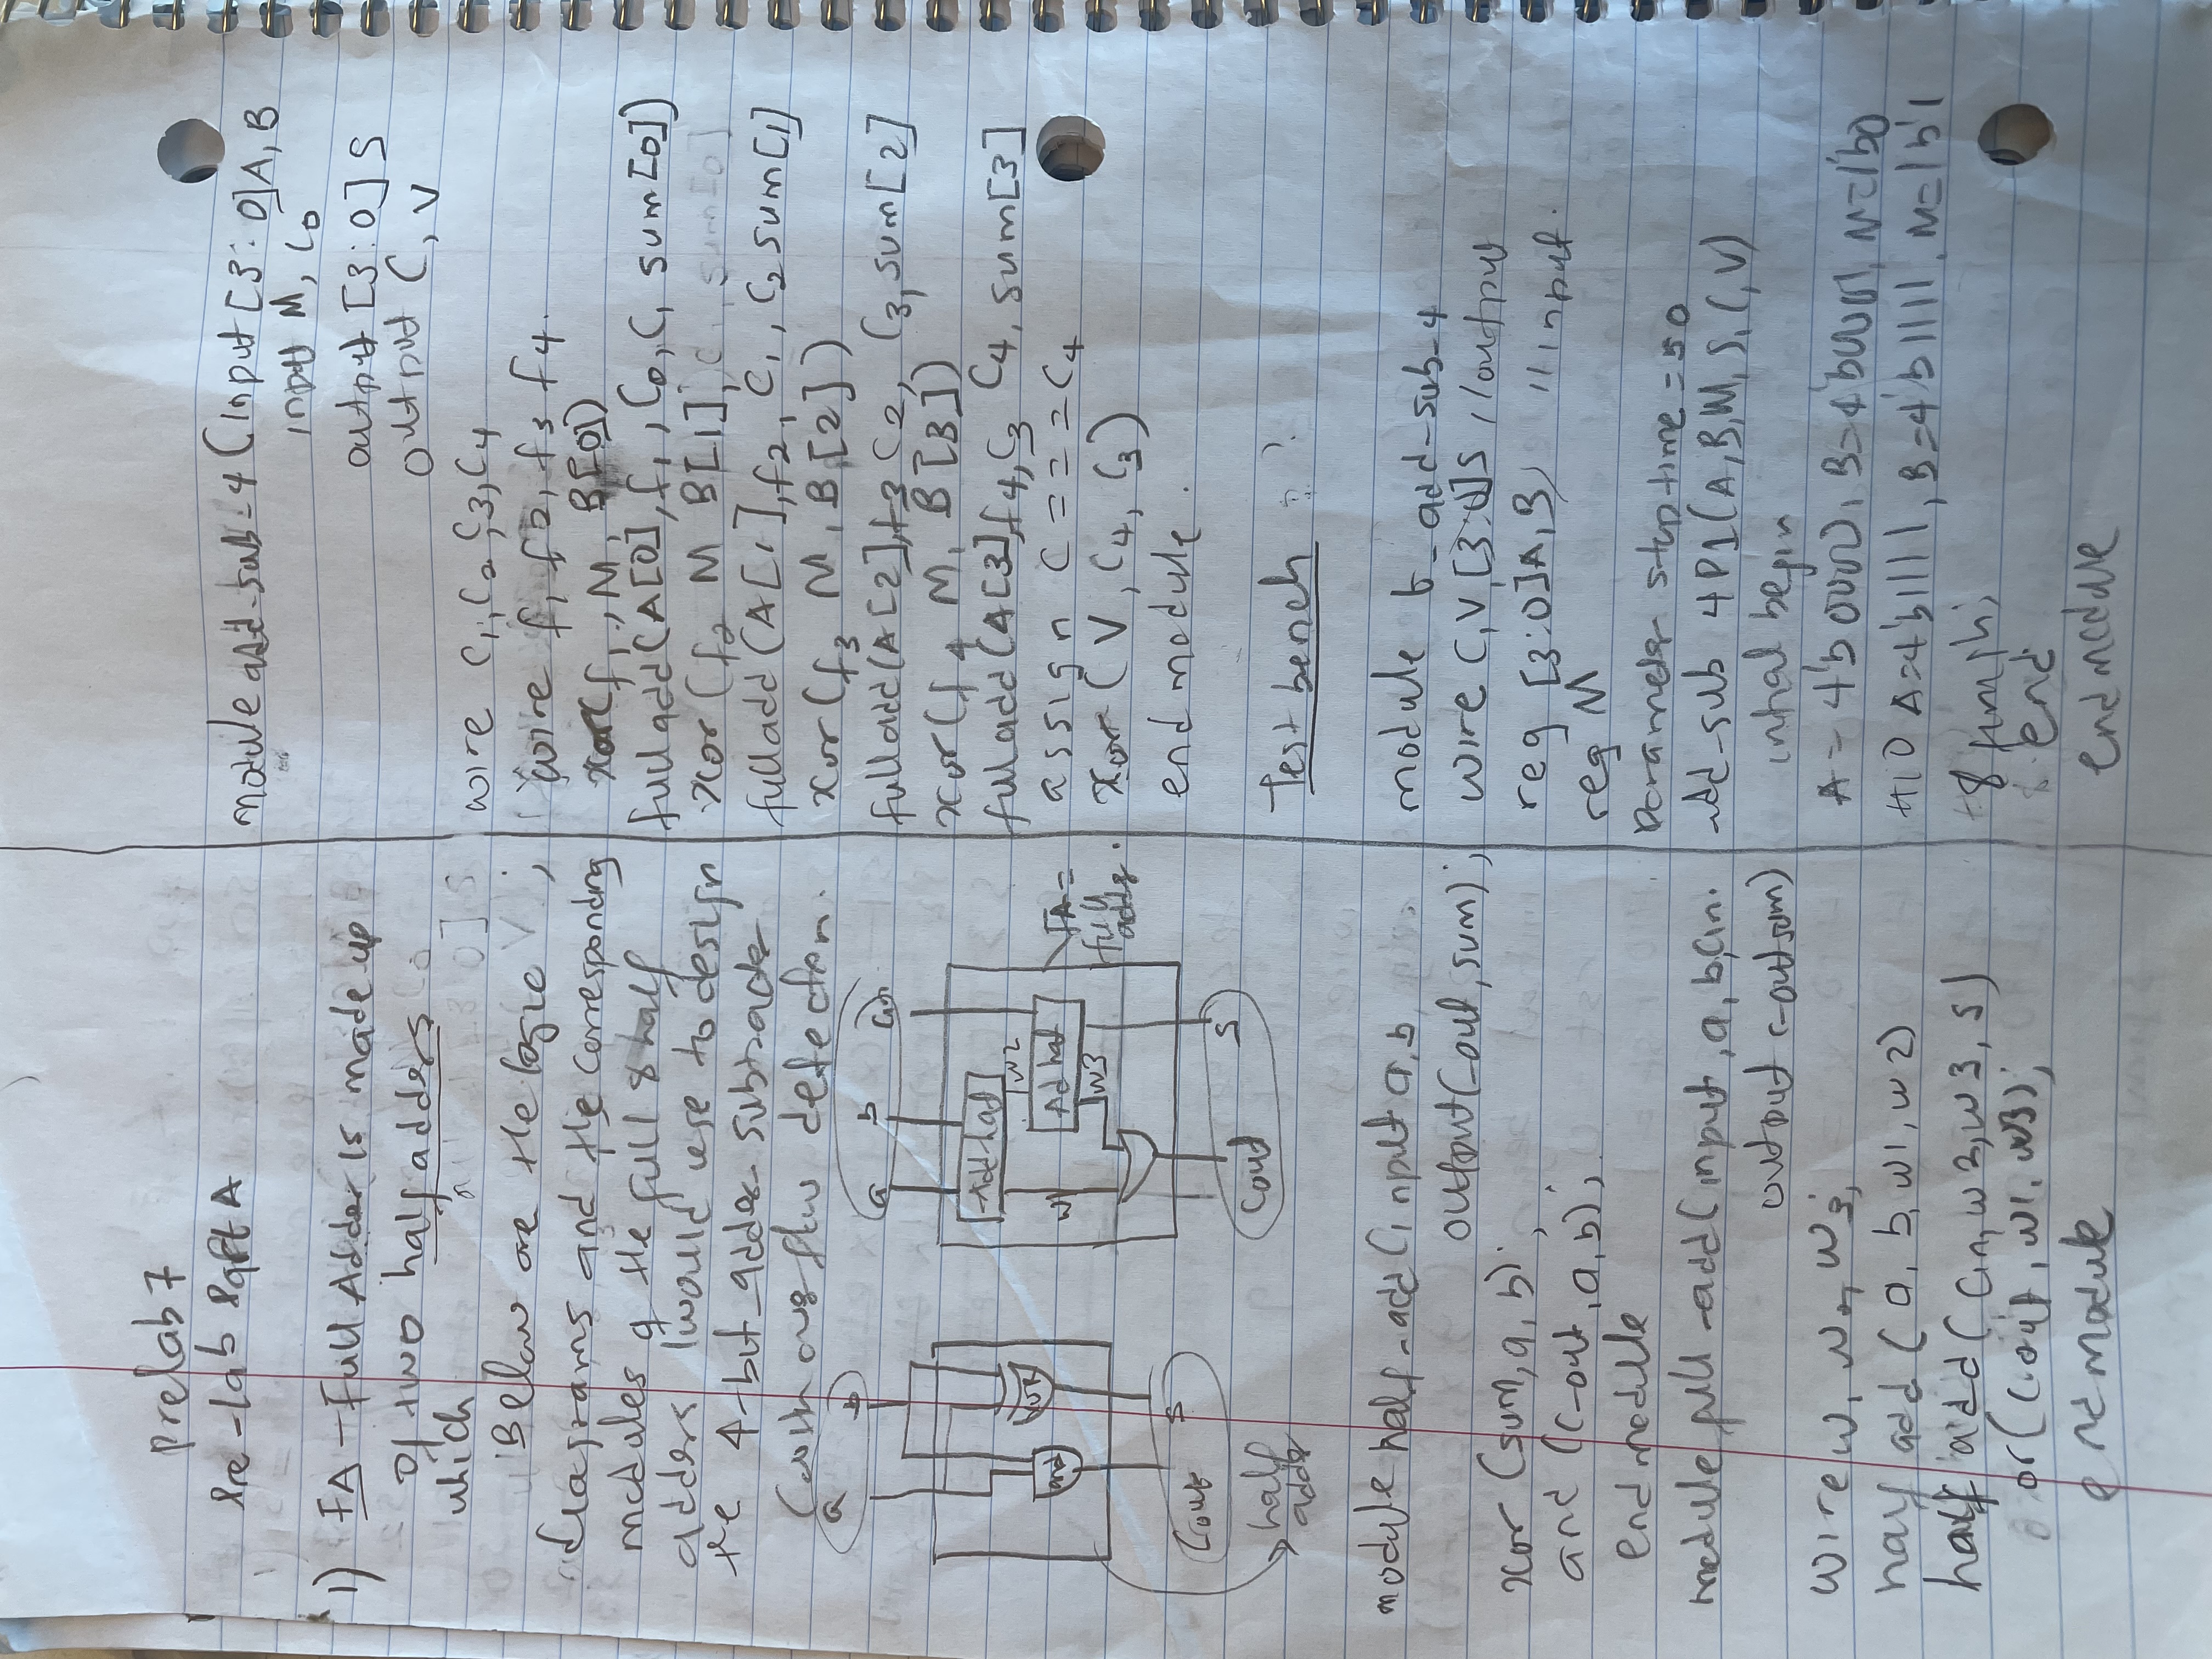 prelab 7
Pre-lab Part A
1) FA - Full Adder is made up
of two half adders
which
Below are the logic
diagrams and the corresponding
modules of the full & half
adders I would use to design
the 4-bit adder subtracter
(with overflow detection.
a b
a b Cin
Add half
w2
and XOR
w1 Ad half
FA =
full
adder.
w3
Cout S
Cout S
half
adder
module half-add (input a, b
output C-out, sum);
xor (sum, a, b);
and (C-out, a, b);
endmodule
module full-add (input, a, b, Cin.
output C-out sum)
wire w1 w2, w3;
half add (a, b, w1, w2)
half add (Cin, w2, w3, s)
or (C-out, w1, w3);
endmodule
module add-sub-4 (input [3:0] A, B
input M, C0
output [3:0] S
output C, V
wire C1, C2, C3, C4
wire f1 f2, f3 f4.
xor(f1, M, B[0])
full add (A[0], f1, C0, C1 sum[0])
xor (f2 M B[1],
full add (A[1], f2, C1, C2 sum[1]
xor (f3 M, B[2])
full add (A[2], f3 C2, C3, sum[2]
xor (f4 M, B[3])
full add (A[3], f4, C3 C4, sum[3]
assign C = = = C4
xor (V, C4, C3)
end module.
Test bench
module t-add-sub-4
wire C, V, [3:0] S, //output
reg [3:0] A, B, //input.
reg M
parameter stop time = 50
add-sub 4P1 (A, B, M, S, C, V)
initial begin
A = 4'b 0000, B=4'b0001, M=1'b0
#10 A=4'b1111, B=4'b1111, M=1b'1
finish;
end
endmodule